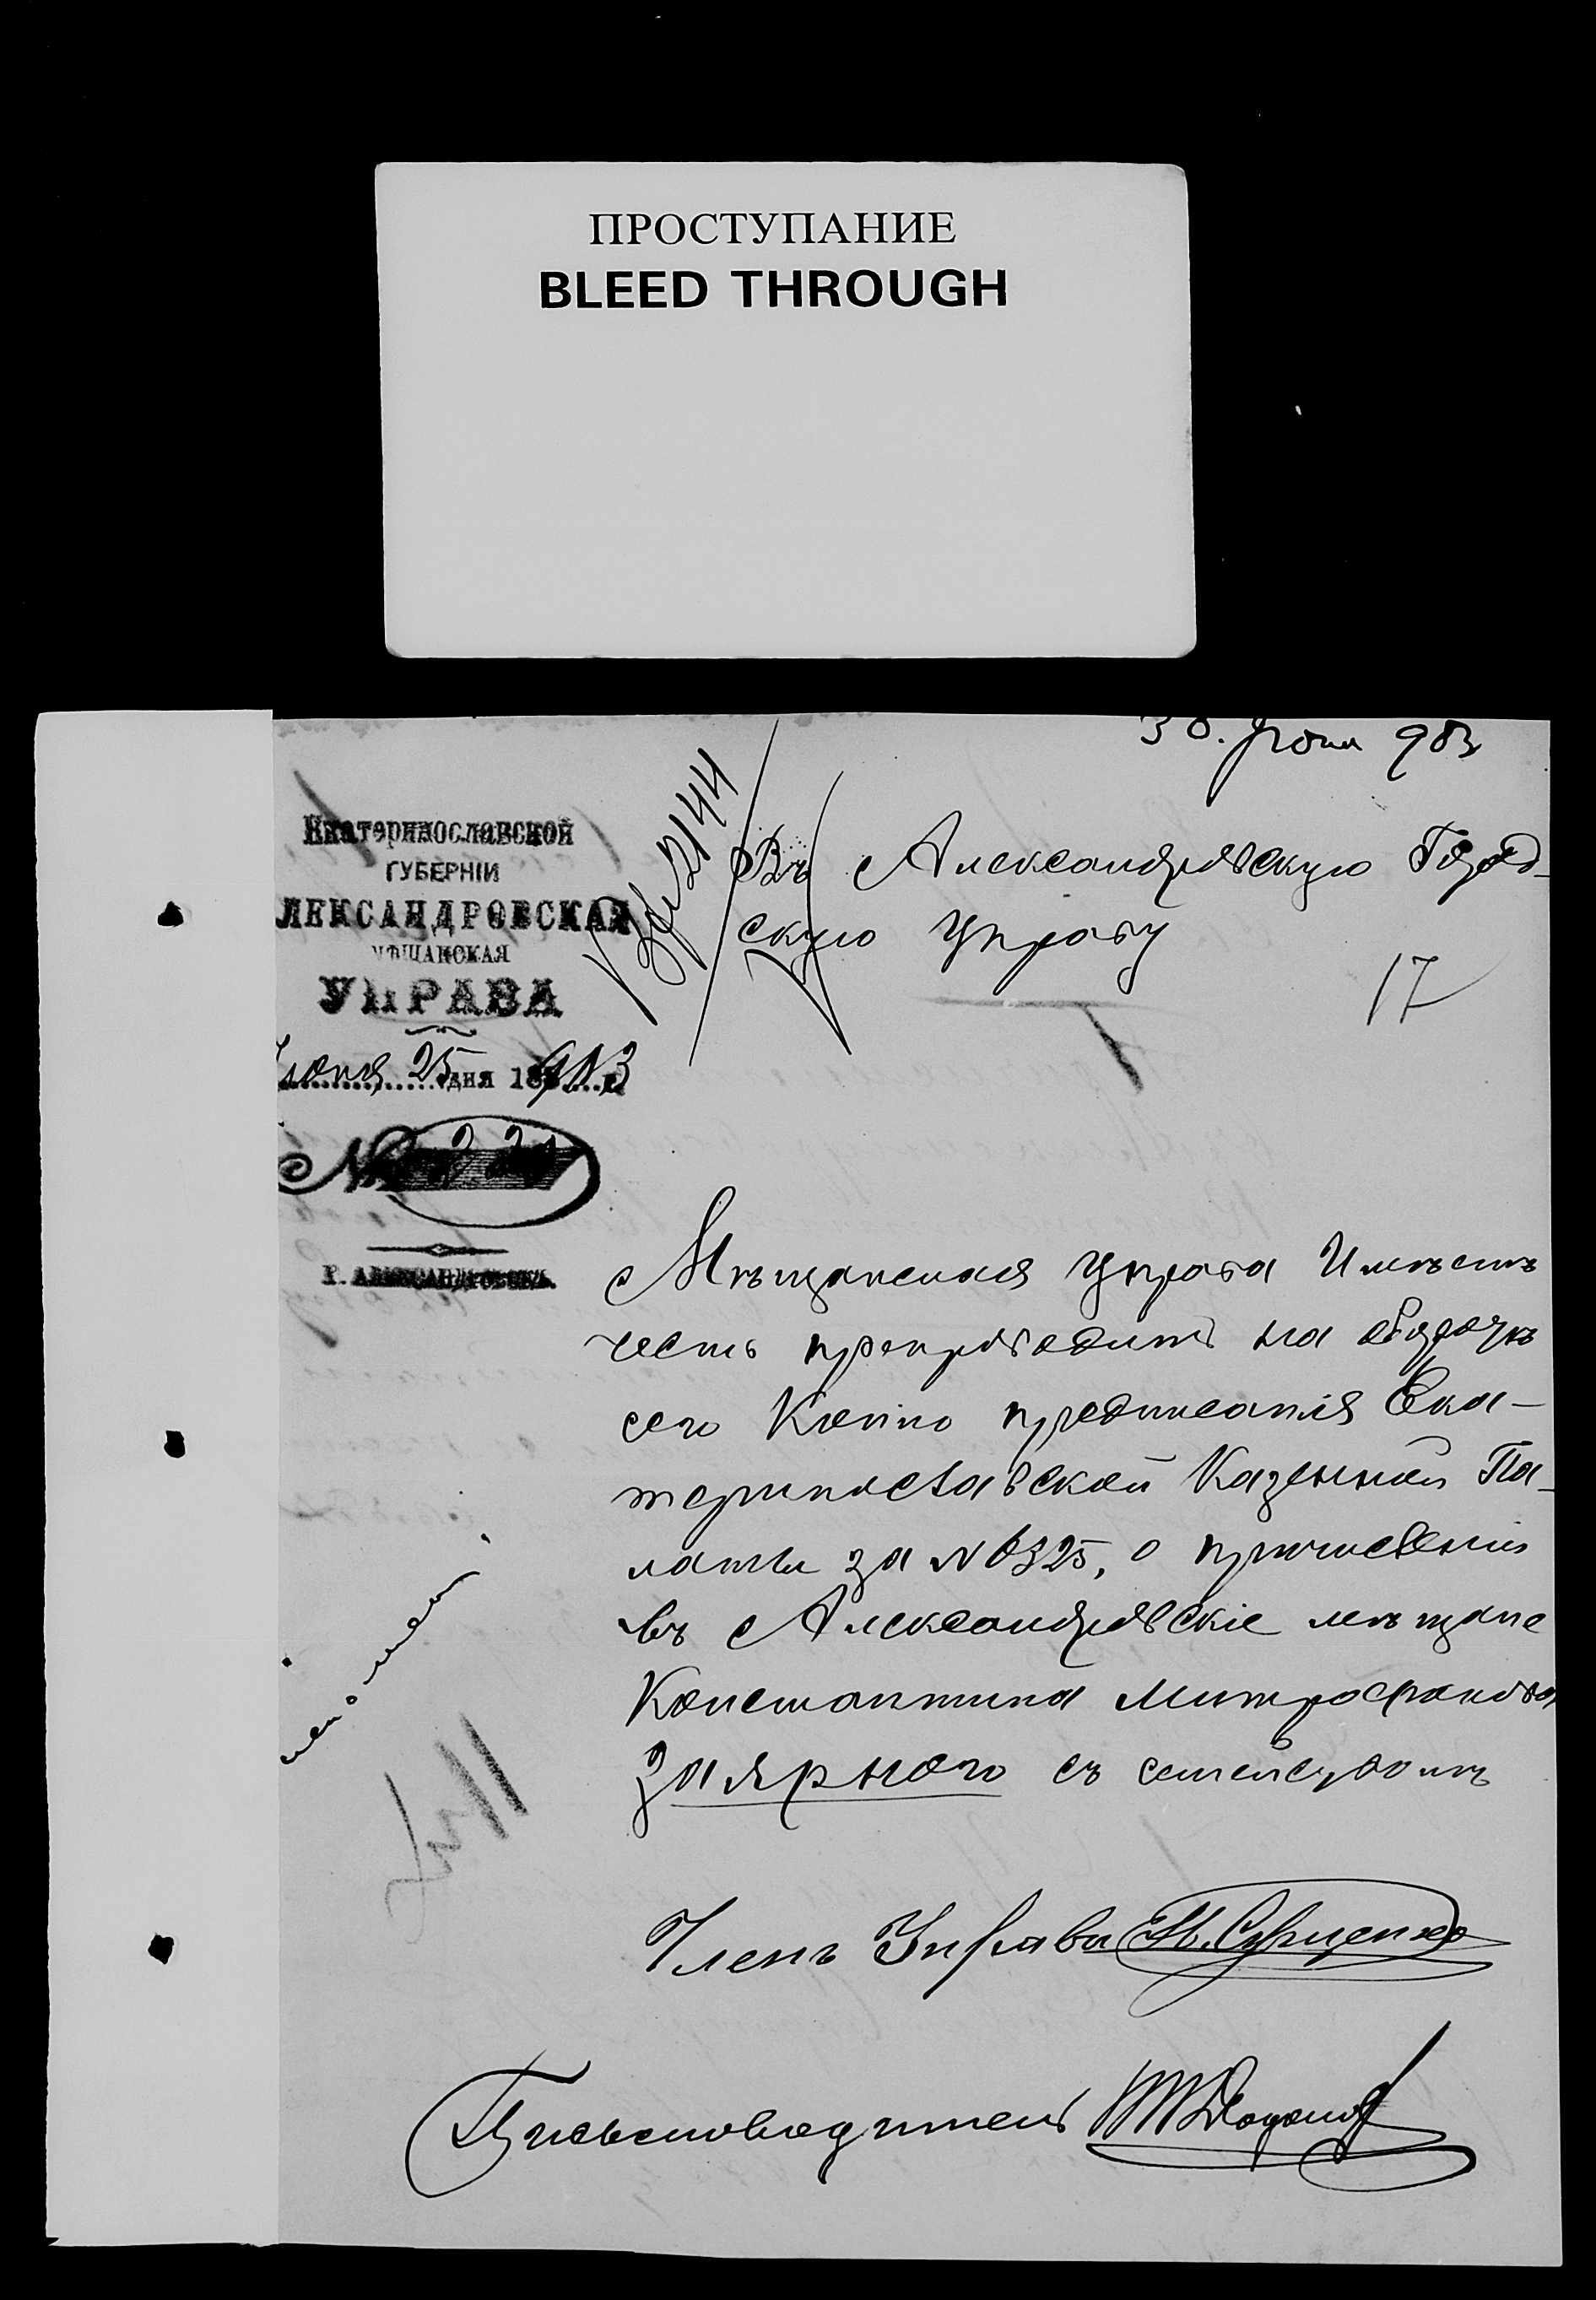 ПРОСТУПАНИЕ
BLEED THROUGH
30. Юня 903
Екатеринославской
ГУБЕРНІИ
ЛЕКСАНДРОВСКАЯ
МѢЩАНСКАЯ
УПРАВА
Іюня 25 дня 1903
№
Г. АЛЕКСАНДРОВСКЪ.
Въ Александровскую Город-
скую Управу
17
Мѣщанская Управа Имѣетъ
честь препроводить на оборотѣ
сего Копію предписанія Ека-
теринославской Казенной Па-
латы за № 6325, о причисленіи
въ Александровскіе мѣщане
Константина Митрофанова
Заярного съ семействомъ
Членъ Управы
Письмоводитель